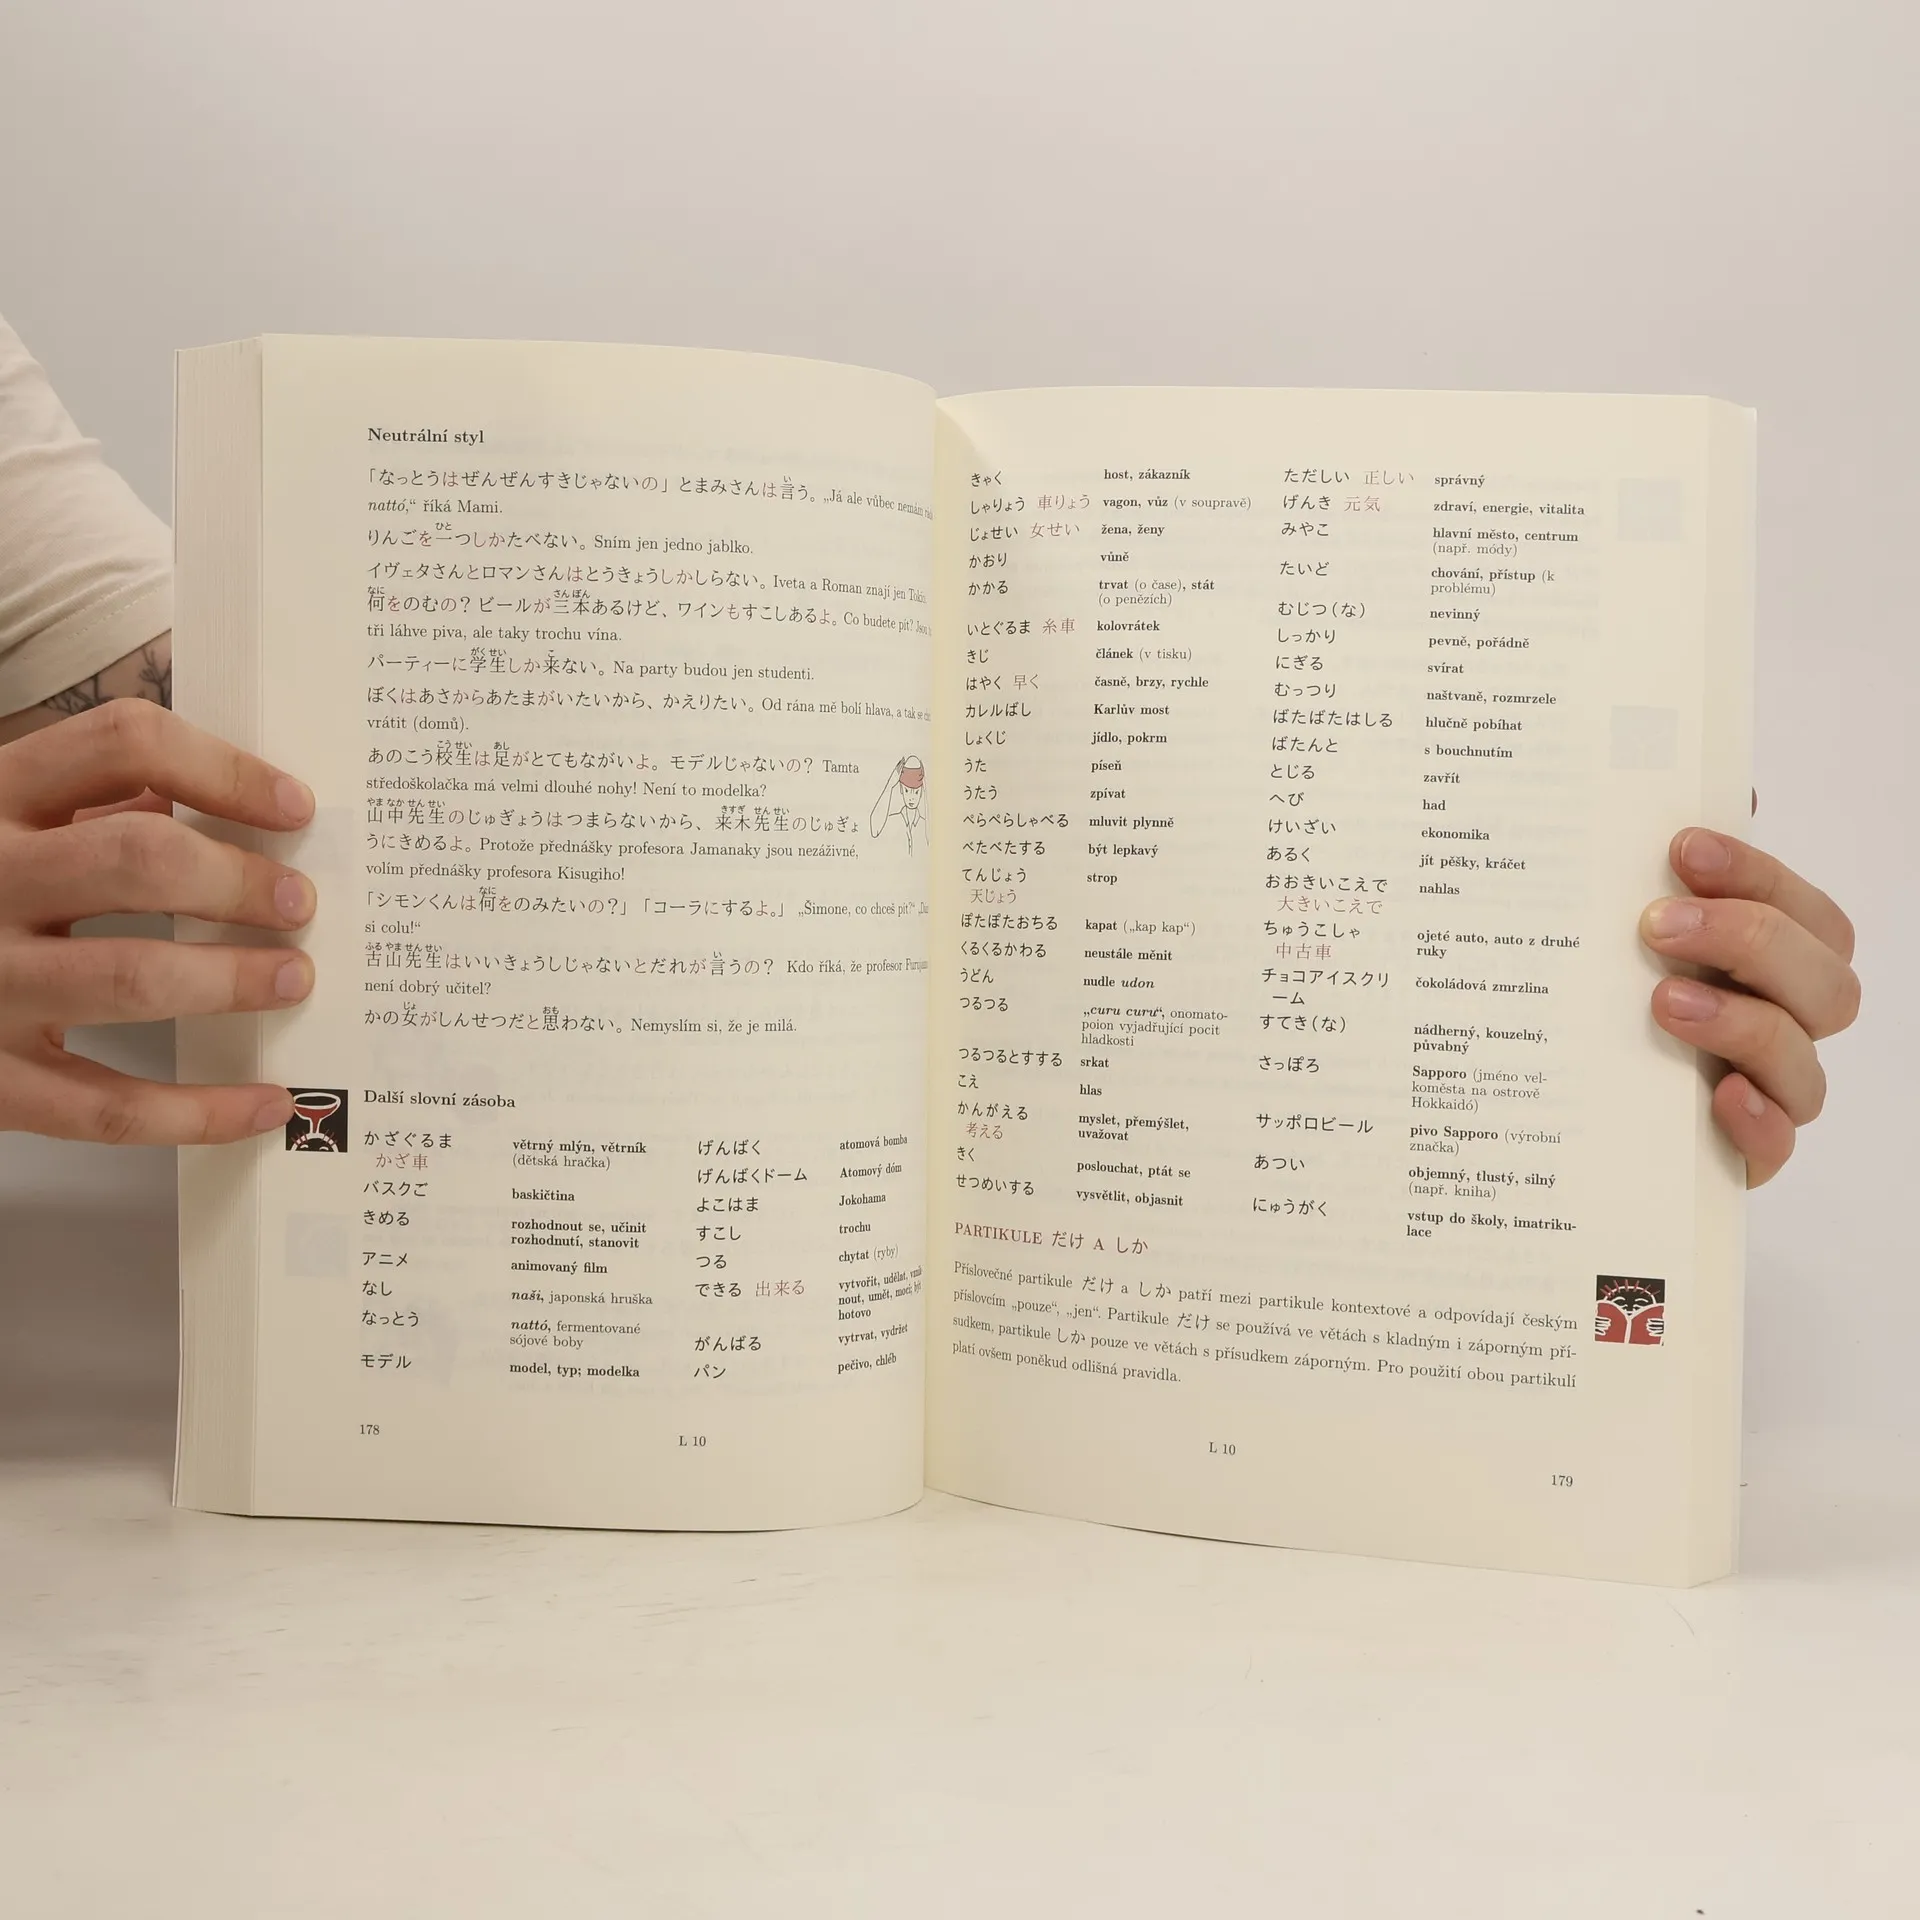 Neutrální styl
「なっとうはぜんぜんすきじゃないの」とまみさんは言う。„Já ale vůbec nemám
nattó,“ říká Mami.
りんごを一つしかたべない。Sním jen jedno jablko.
イヴェタさんとロマンさんはとうきょうしかしらない。Iveta a Roman znají jen
何をのむの？ビールが三本あるけど、ワインもすこしあるよ。Co budete pít?
tři láhve piva, ale taky trochu vína.
パーティーに学生しか来ない。Na party budou jen studenti.
ぼくはあさからあたまがいたいから、かえりたい。Od rána mě bolí hlava, a tak se
vrátit (domů).
あのこう校生は足がとてもながいよ。モデルじゃないの？ Tamta
středoškolačka má velmi dlouhé nohy! Není to modelka?
山中先生のじゅぎょうはつまらないから、来木先生のじゅぎょ
うにきめるよ。Protože přednášky profesora Jamanaky jsou nezáživné,
volím přednášky profesora Kisugiho!
「シモンくんは何をのみたいの？」「コーラにするよ。」 „Šimone, co chceš pít?“
si colu!“
古山先生はいいきょうしじゃないとだれが言うの？ Kdo říká, že profesor
není dobrý učitel?
かの女がしんせつだと思わない。Nemyslím si, že je milá.
Další slovní zásoba
かざぐるま větrný mlýn, větrník
かざ車 (dětská hračka)
バスクご baskičtina
きめる rozhodnout se, učinit
rozhodnutí, stanovit
アニメ animovaný film
なし naši, japonská hruška
なっとう nattó, fermentované
sójové boby
モデル model, typ; modelka
げんばく atomová bomba
げんばくドーム Atomový dóm
よこはま Jokohama
すこし trochu
つる chytat (ryby)
できる 出来る vytvořit, udělat,
nout, umět, moci, být
hotovo
がんばる vytrvat, vydržet
パン pečivo, chléb
178
L 10
きゃく host, zákazník
しゃりょう 車りょう vagon, vůz (v soupravě)
じょせい 女せい žena, ženy
かおり vůně
かかる trvat (o čase), stát
(o penězích)
いとぐるま 糸車 kolovrátek
きじ článek (v tisku)
はやく 早く časně, brzy, rychle
カレルばし Karlův most
しょくじ jídlo, pokrm
うた píseň
うたう zpívat
ぺらぺらしゃべる mluvit plynně
べたべたする být lepkavý
てんじょう strop
天じょう
ぽたぽたおちる kapat („kap kap“)
くるくるかわる neustále měnit
うどん nudle udon
つるつる „curu curu“, onomato-
poion vyjadřující pocit
hladkosti
つるつるとすする srkat
こえ hlas
かんがえる myslet, přemýšlet,
考える uvažovat
きく poslouchat, ptát se
せつめいする vysvětlit, objasnit
ただしい 正しい správný
げんき 元気 zdraví, energie, vitalita
みやこ hlavní město, centrum
(např. módy)
たいど chování, přístup (k
problému)
むじつ(な) nevinný
しっかり pevně, pořádně
にぎる svírat
むっつり naštvaně, rozmrzele
ばたばたはしる hlučně pobíhat
ばたんと s bouchnutím
とじる zavřít
へび had
けいざい ekonomika
あるく jít pěšky, kráčet
おおきいこえで nahlas
大きいこえで
ちゅうこしゃ ojeté auto, auto z druhé
中古車 ruky
チョコアイスクリ čokoládová zmrzlina
ーム
すてき(な) nádherný, kouzelný,
půvabný
さっぽろ Sapporo (jméno vel-
koměsta na ostrově
Hokkaidó)
サッポロビール pivo Sapporo (výrobní
značka)
あつい objemný, tlustý, silný
(např. kniha)
にゅうがく vstup do školy, imatriku-
lace
PARTIKULE だけ A しか
Příslovečné partikule だけ a しか patří mezi partikule kontextové a odpovídají českým
příslovcím „pouze“, „jen“. Partikule だけ se používá ve větách s kladným i záporným pří-
sudkem, partikule しか pouze ve větách s přísudkem záporným. Pro použití obou partikulí
platí ovšem poněkud odlišná pravidla.
L 10
179